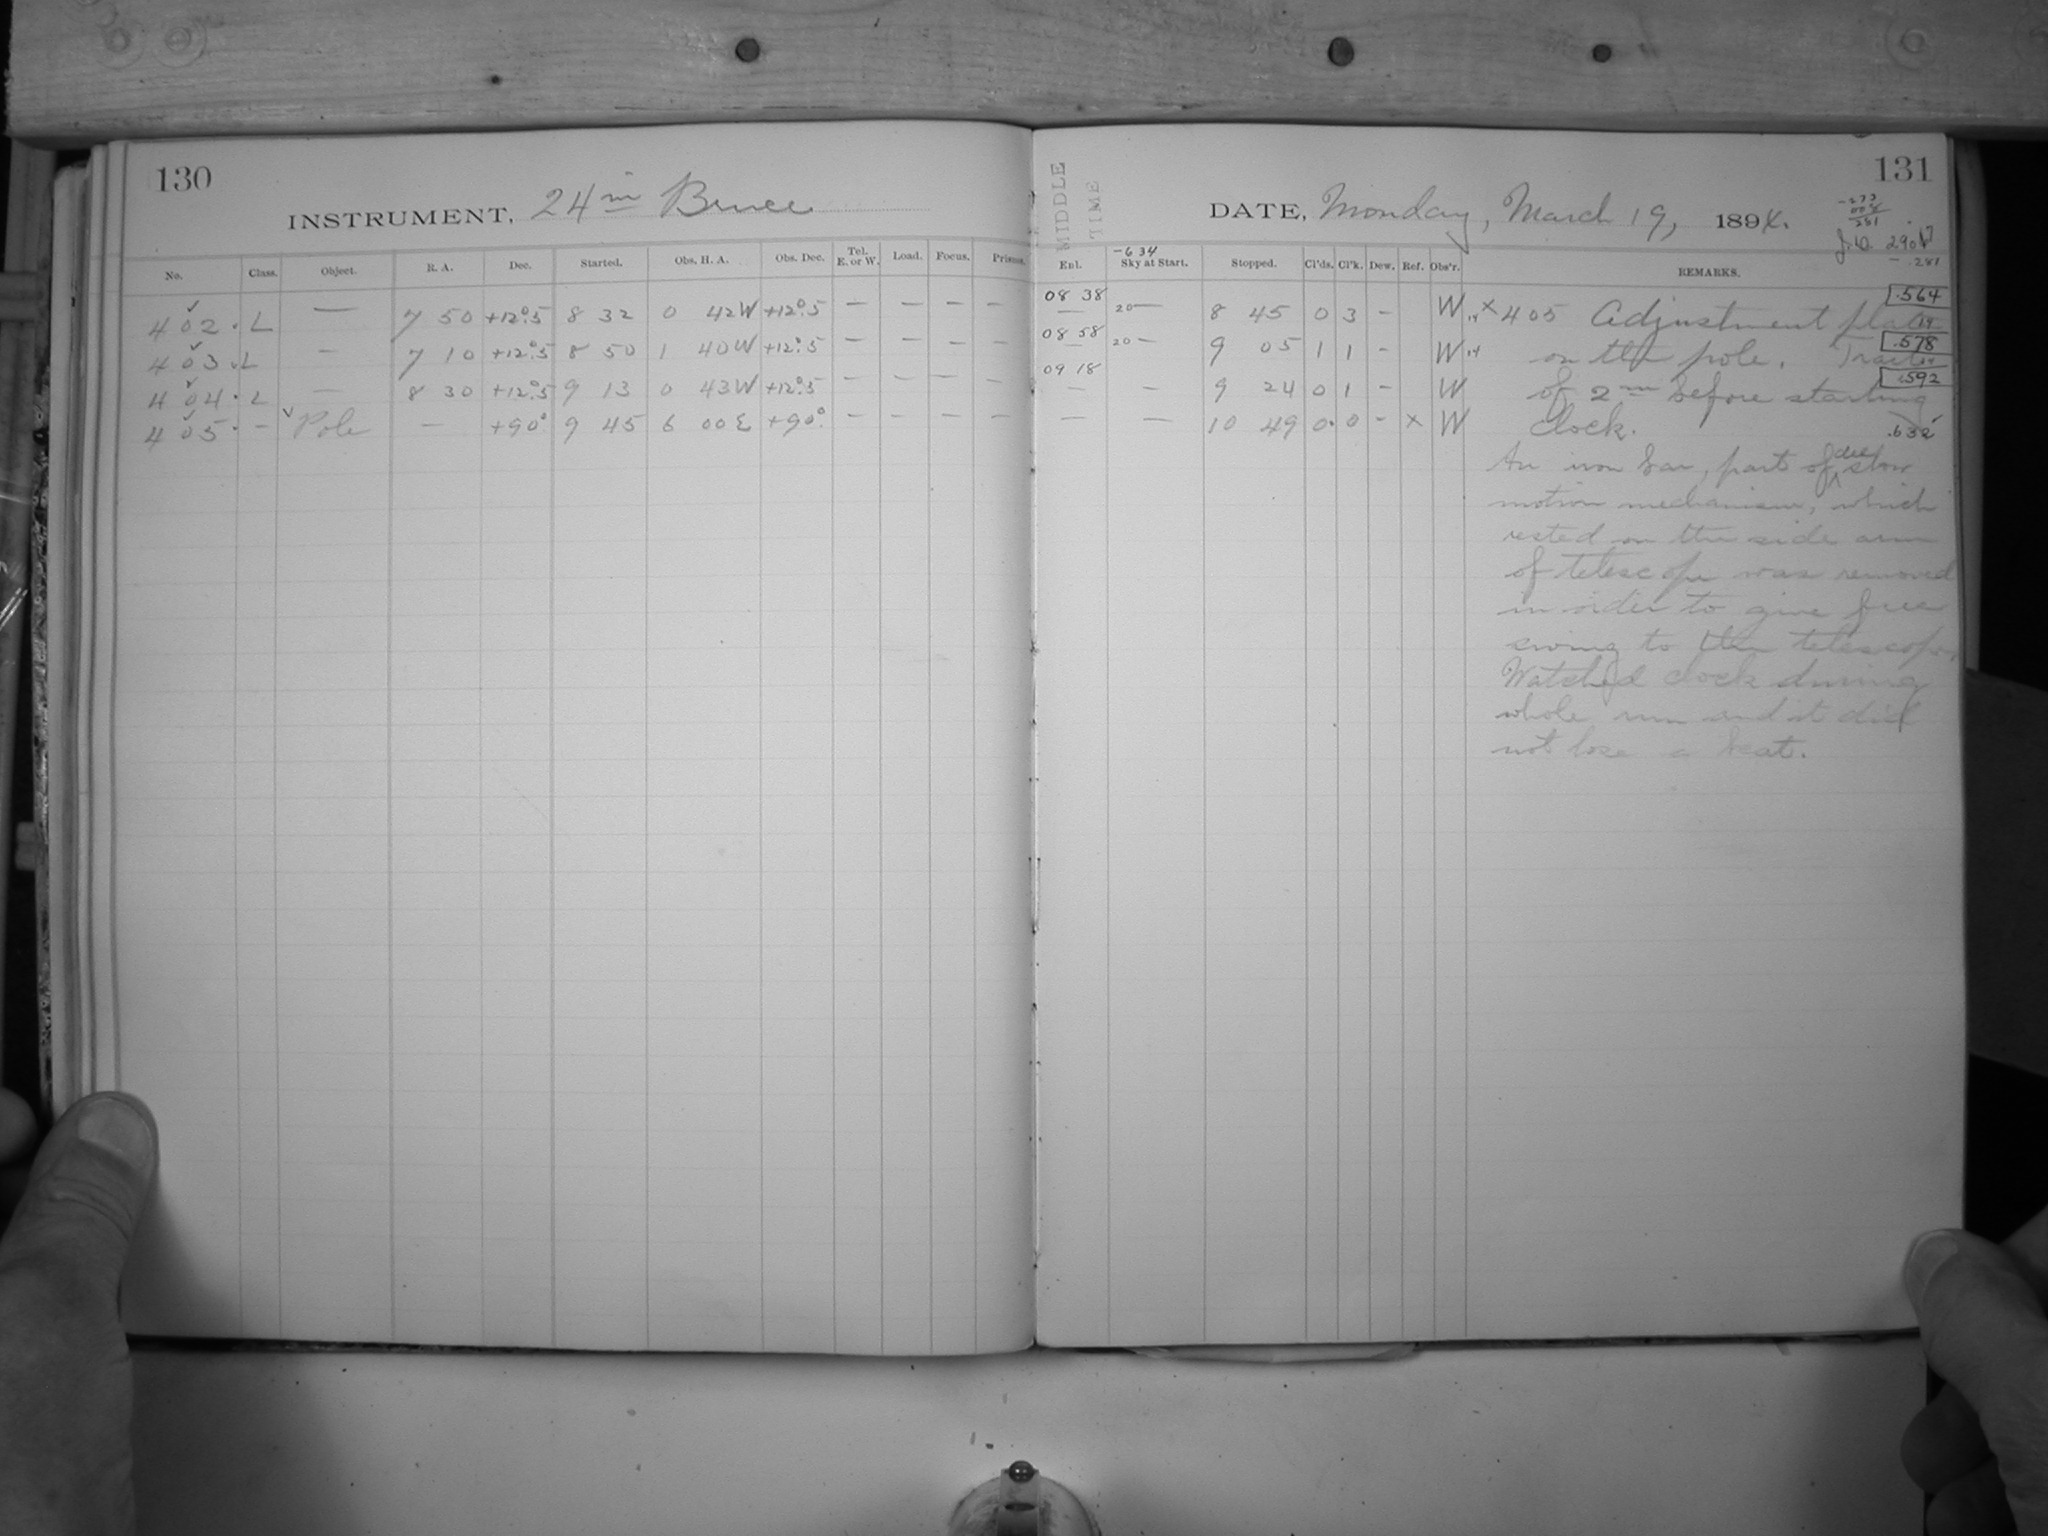 130
INSTRUMENT, 24 in Bruce
No. Class. Object. R. A. Dec. Started. Obs. H. A. Obs. Dec. Tel. E. or W. Load. Focus. Prisms.
402. L — 7 50 +12°.5 8 32 0 42W +12°.5 — — — —
403. L — 7 10 +12°.5 8 50 1 40W +12°.5 — — — —
404. L — 8 30 +12°.5 9 13 0 43W +12°.5 — — — —
405. — Pole — +90° 9 45 6 00E +90° — — — —
131
MIDDLE
TIME
DATE, Monday, March 19, 1894.
-273
008
281
J.D.
- .281
-634
Exl. Sky at Start. Stopped. Cl'ds. Cl'k. Dew. Ref. Obs'r. REMARKS.
08 38 20 — 8 45 0 3 — W
08 58 20 — 9 05 1 1 — W
09 18 — 9 24 0 1 — W
— — 10 49 0. 0 — x W
x405 Adjustment plate .564
on the pole. Trail .578
of 2 m before starting .592
clock. .632
An iron bar, part of dec slow
motion mechanism, which
rested on the side arm
of telescope was removed
in order to give free
swing to the telescope.
Watched clock during
whole run and it did
not lose a beat.